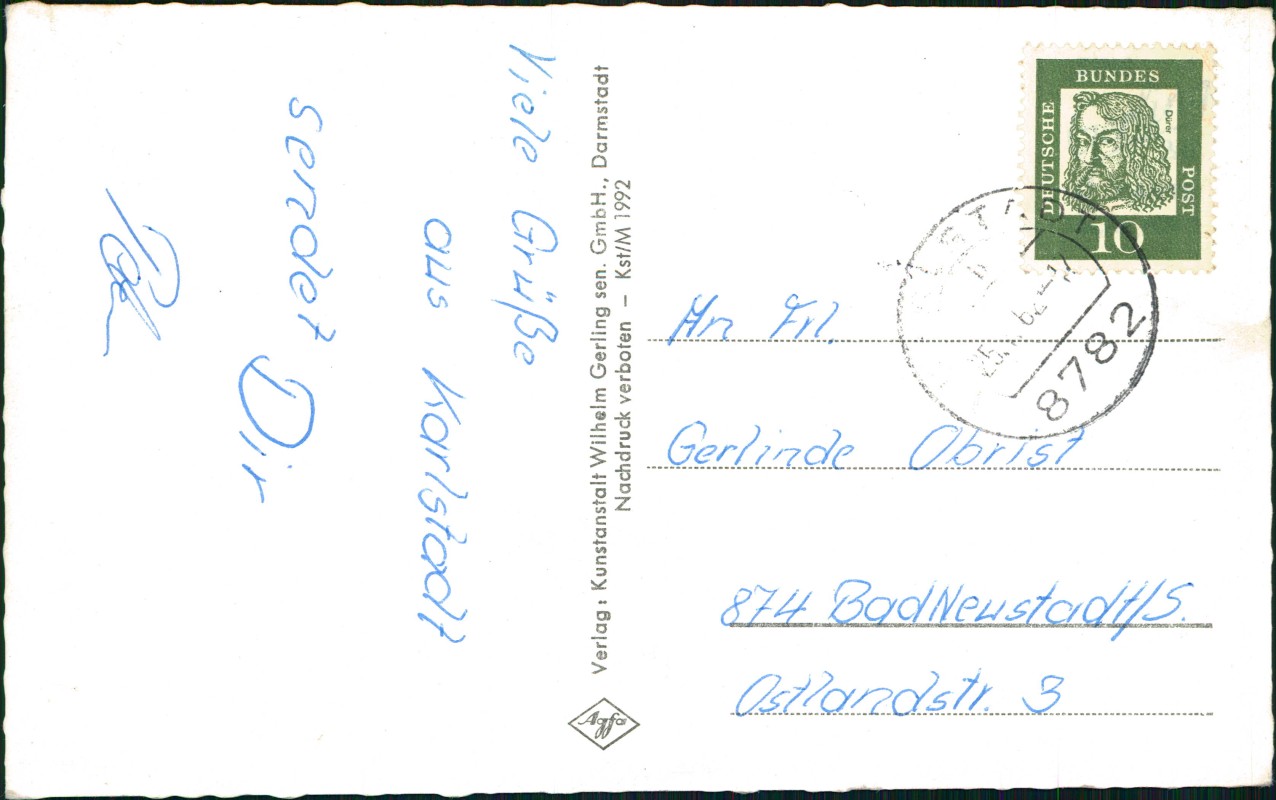 Viele Grüße
aus Karlstadt
sendet Dir
Verlag: Kunstanstalt Wilhelm Gerling sen. GmbH., Darmstadt
Nachdruck verboten – Kst/M 1992
Agfa
DEUTSCHE BUNDES POST
Dürer
10
8782
An Frl.
Gerlinde Obrist
874 Bad Neustadt/S.
Ostlandstr. 3